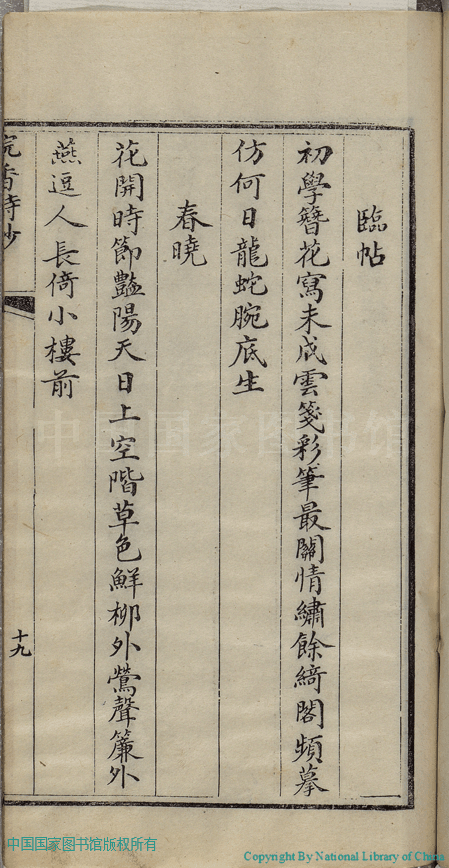 臨帖
初學簪花寫未成雲箋彩筆最關情繡餘綺閣頻摹
仿何日龍蛇腕底生
春曉
花開時節豔陽天日上空階草色鮮柳外鶯聲簾外
燕逗人長倚小樓前
浣香詩鈔
十九
中国国家图书馆
中国国家图书馆版权所有
Copyright By National Library of China